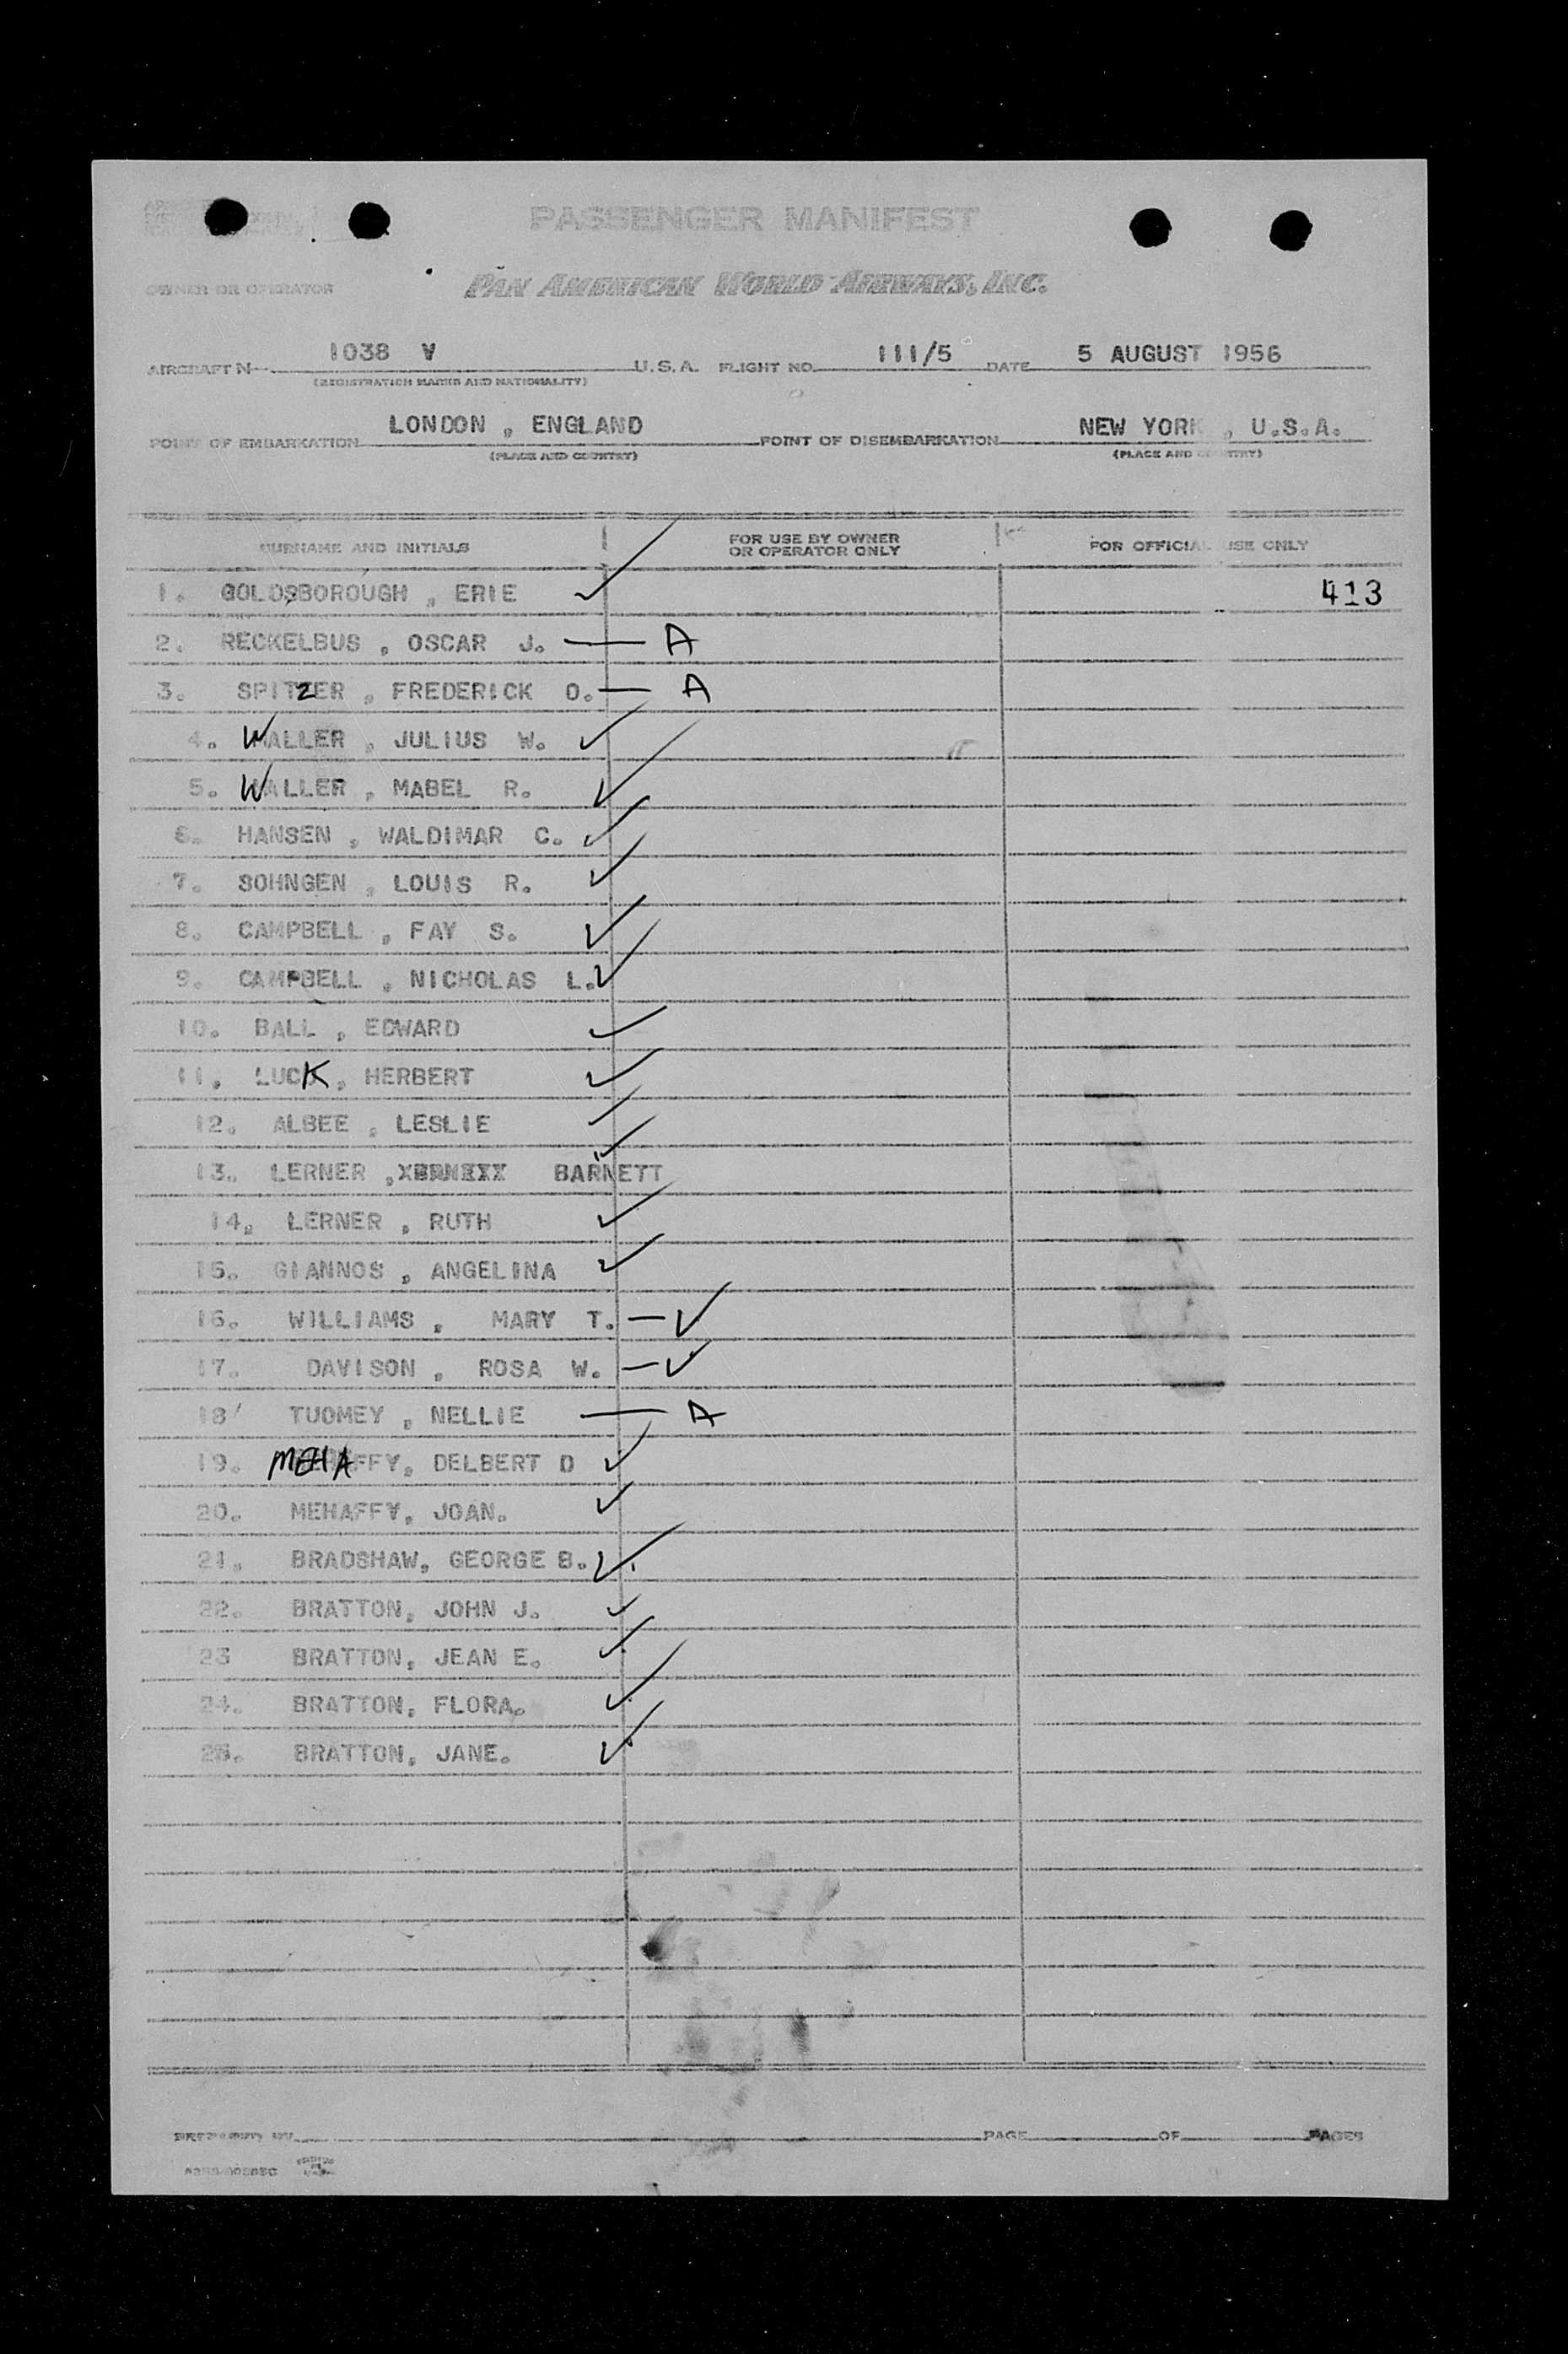 PASSENGER MANIFEST
OWNER OR OPERATOR PAN AMERICAN WORLD AIRWAYS, INC.
AIRCRAFT N 1038 V U.S.A. FLIGHT NO. 111/5 DATE 5 AUGUST 1956
(REGISTRATION MARKS AND NATIONALITY)
POINT OF EMBARKATION LONDON , ENGLAND POINT OF DISEMBARKATION NEW YORK , U.S.A.
(PLACE AND COUNTRY) (PLACE AND COUNTRY)
SURNAME AND INITIALS FOR USE BY OWNER OR OPERATOR ONLY FOR OFFICIAL USE ONLY
1. GOLDSBOROUGH , ERIE ✓ 413
2. RECKELBUS , OSCAR J. — A
3. SPITZER , FREDERICK O. — A
4. WALLER , JULIUS W. ✓
5. WALLER , MABEL R. ✓
6. HANSEN , WALDIMAR C. ✓
7. SOHNGEN , LOUIS R. ✓
8. CAMPBELL , FAY S. ✓
9. CAMPBELL , NICHOLAS L. ✓
10. BALL , EDWARD ✓
11. LUCK , HERBERT ✓
12. ALBEE , LESLIE ✓
13. LERNER , BARNETT ✓
14. LERNER , RUTH ✓
15. GIANNOS , ANGELINA ✓
16. WILLIAMS , MARY T. — ✓
17. DAVISON , ROSA W. — ✓
18/ TUOMEY , NELLIE — A
19. MEHAFFY, DELBERT D ✓
20. MEHAFFY, JOAN. ✓
21. BRADSHAW, GEORGE B. ✓
22. BRATTON, JOHN J. ✓
23 BRATTON, JEAN E. ✓
24. BRATTON, FLORA. ✓
25. BRATTON, JANE. ✓
PREPARED BY PAGE OF PAGES